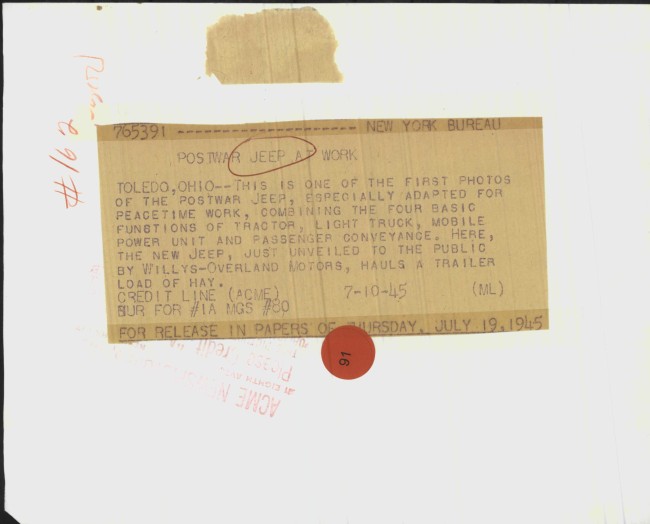 765391 -------------------- NEW YORK BUREAU
POSTWAR JEEP AT WORK
TOLEDO,OHIO--THIS IS ONE OF THE FIRST PHOTOS
OF THE POSTWAR JEEP, ESPECIALLY ADAPTED FOR
PEACETIME WORK, COMBINING THE FOUR BASIC
FUNSTIONS OF TRACTOR, LIGHT TRUCK, MOBILE
POWER UNIT AND PASSENGER CONVEYANCE. HERE,
THE NEW JEEP, JUST UNVEILED TO THE PUBLIC
BY WILLYS-OVERLAND MOTORS, HAULS A TRAILER
LOAD OF HAY.
CREDIT LINE (ACME) 7-10-45 (ML)
BUR FOR #1A MGS #80
FOR RELEASE IN PAPERS OF THURSDAY, JULY 19,1945
91
Please credit "A
ACME